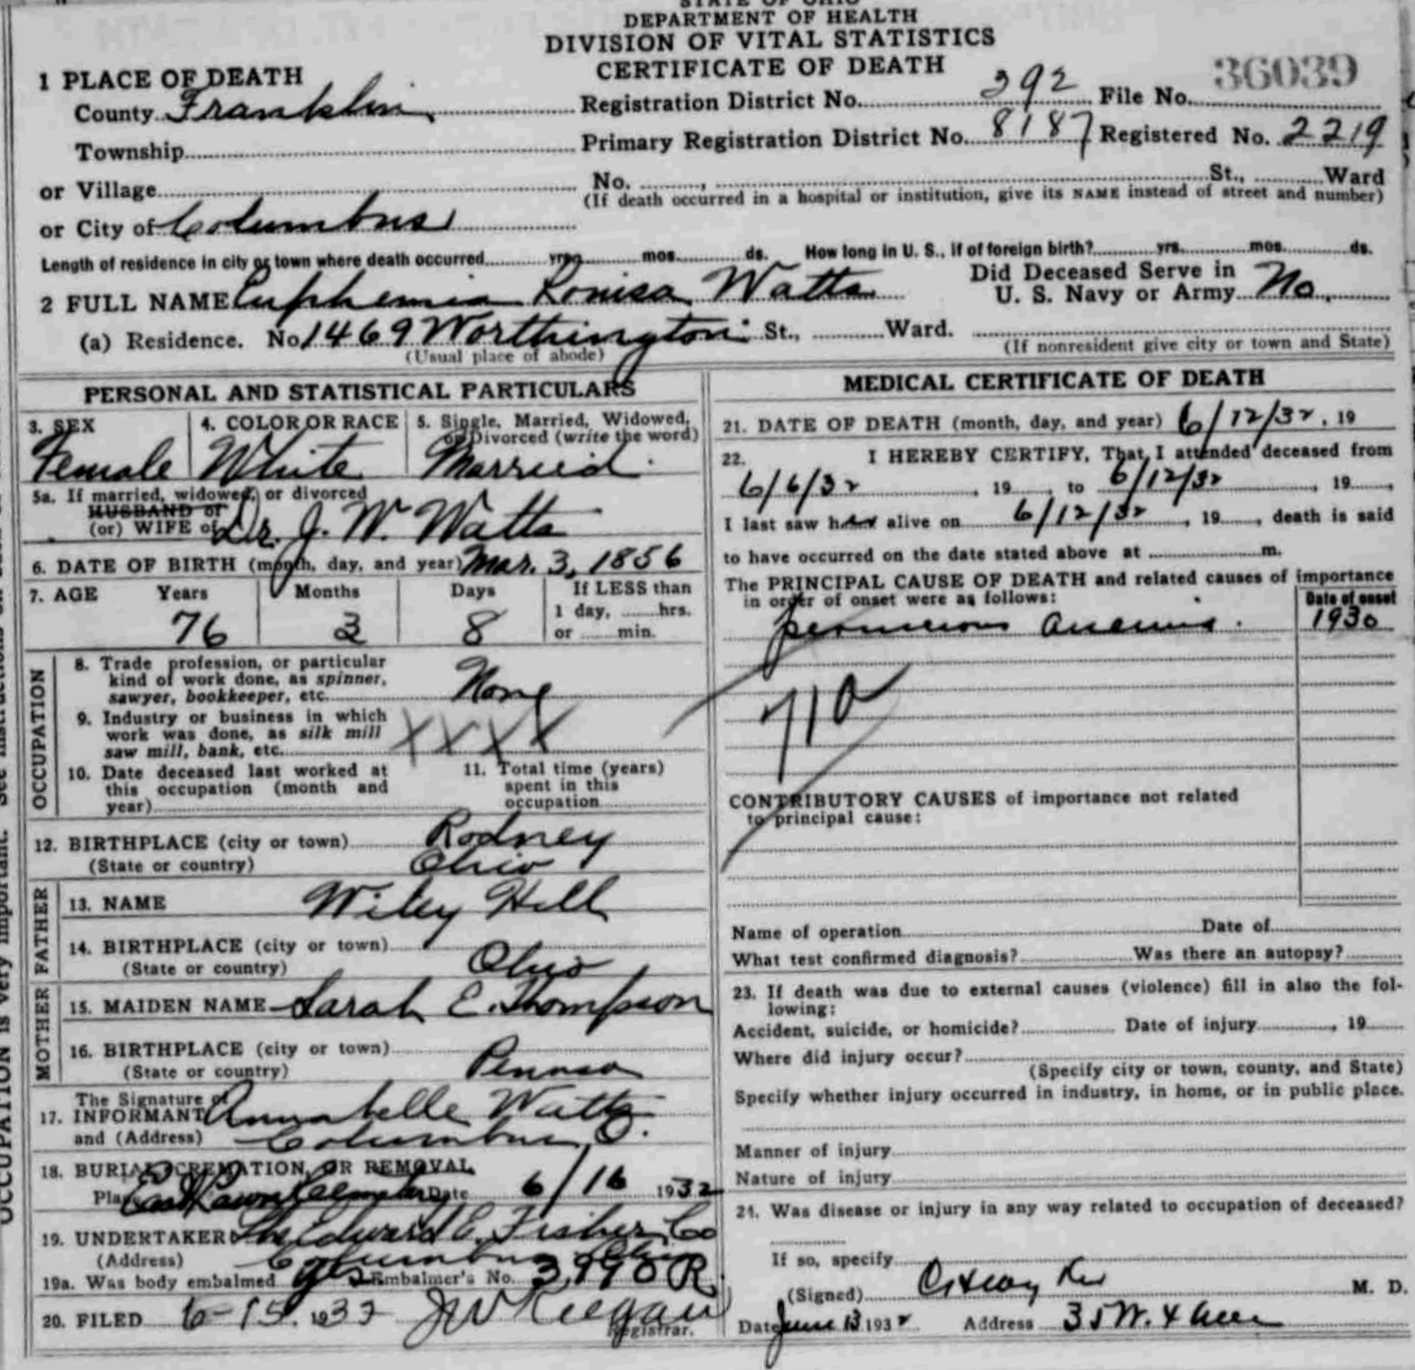 STATE OF OHIO
DEPARTMENT OF HEALTH
DIVISION OF VITAL STATISTICS
CERTIFICATE OF DEATH
36039
1 PLACE OF DEATH
County Franklin Registration District No. 392 File No.
Township Primary Registration District No. 8187 Registered No. 2219
or Village No. , St., Ward
(If death occurred in a hospital or institution, give its NAME instead of street and number)
or City of Columbus
Length of residence in city or town where death occurred yrs. mos. ds. How long in U. S., if of foreign birth? yrs. mos. ds.
2 FULL NAME Euphemia Louisa Watts Did Deceased Serve in U. S. Navy or Army No.
(a) Residence. No. 1469 Worthington St., Ward.
(Usual place of abode) (If nonresident give city or town and State)
PERSONAL AND STATISTICAL PARTICULARS
3. SEX 4. COLOR OR RACE 5. Single, Married, Widowed, or Divorced (write the word)
Female White Married.
5a. If married, widowed, or divorced
HUSBAND of
(or) WIFE of Dr. J. W. Watts
6. DATE OF BIRTH (month, day, and year) Mar. 3, 1856
7. AGE Years Months Days If LESS than
1 day, hrs.
or min.
76 3 8
OCCUPATION
8. Trade profession, or particular
kind of work done, as spinner,
sawyer, bookkeeper, etc. None
9. Industry or business in which
work was done, as silk mill
saw mill, bank, etc. XXXX
10. Date deceased last worked at
this occupation (month and
year)
11. Total time (years)
spent in this
occupation
12. BIRTHPLACE (city or town) Rodney
(State or country) Ohio
FATHER
13. NAME Wiley Hill
14. BIRTHPLACE (city or town)
(State or country) Ohio
MOTHER
15. MAIDEN NAME Sarah E. Thompson
16. BIRTHPLACE (city or town)
(State or country) Penna
The Signature of
17. INFORMANT Annabelle Watts
and (Address) Columbus, O.
18. BURIAL, CREMATION, OR REMOVAL
Place Date 6/16 1932
19. UNDERTAKER Edward E. Fisher Co
(Address) Columbus Ohio
19a. Was body embalmed yes Embalmer's No. 3990 R
20. FILED 6-15, 1932
Registrar.
MEDICAL CERTIFICATE OF DEATH
21. DATE OF DEATH (month, day, and year) 6/12/32, 19
22. I HEREBY CERTIFY, That I attended deceased from
6/6/32, 19 to 6/12/32, 19,
I last saw her alive on 6/12/32, 19, death is said
to have occurred on the date stated above at m.
The PRINCIPAL CAUSE OF DEATH and related causes of importance
in order of onset were as follows: Date of onset
pernicious anemia. 1930
71a
CONTRIBUTORY CAUSES of importance not related
to principal cause:
Name of operation Date of
What test confirmed diagnosis? Was there an autopsy?
23. If death was due to external causes (violence) fill in also the fol-
lowing:
Accident, suicide, or homicide? Date of injury , 19
Where did injury occur?
(Specify city or town, county, and State)
Specify whether injury occurred in industry, in home, or in public place.
Manner of injury
Nature of injury
24. Was disease or injury in any way related to occupation of deceased?
If so, specify
(Signed) M. D.
Date June 13 1932 Address 35 W. 4 Ave
OCCUPATION is very important. See instructions on